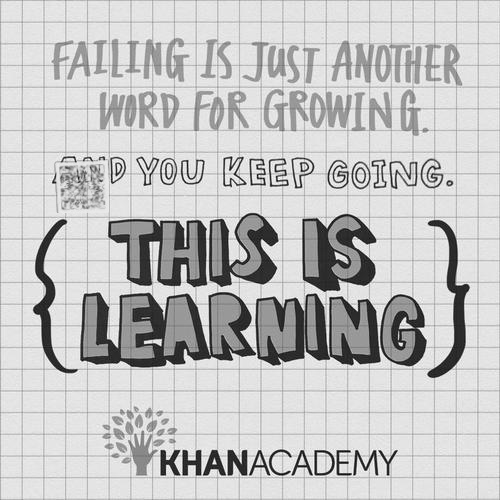 FAILING IS JUST ANOTHER
WORD FOR GROWING.
AND YOU KEEP GOING.
THIS IS
LEARNING
KHANACADEMY